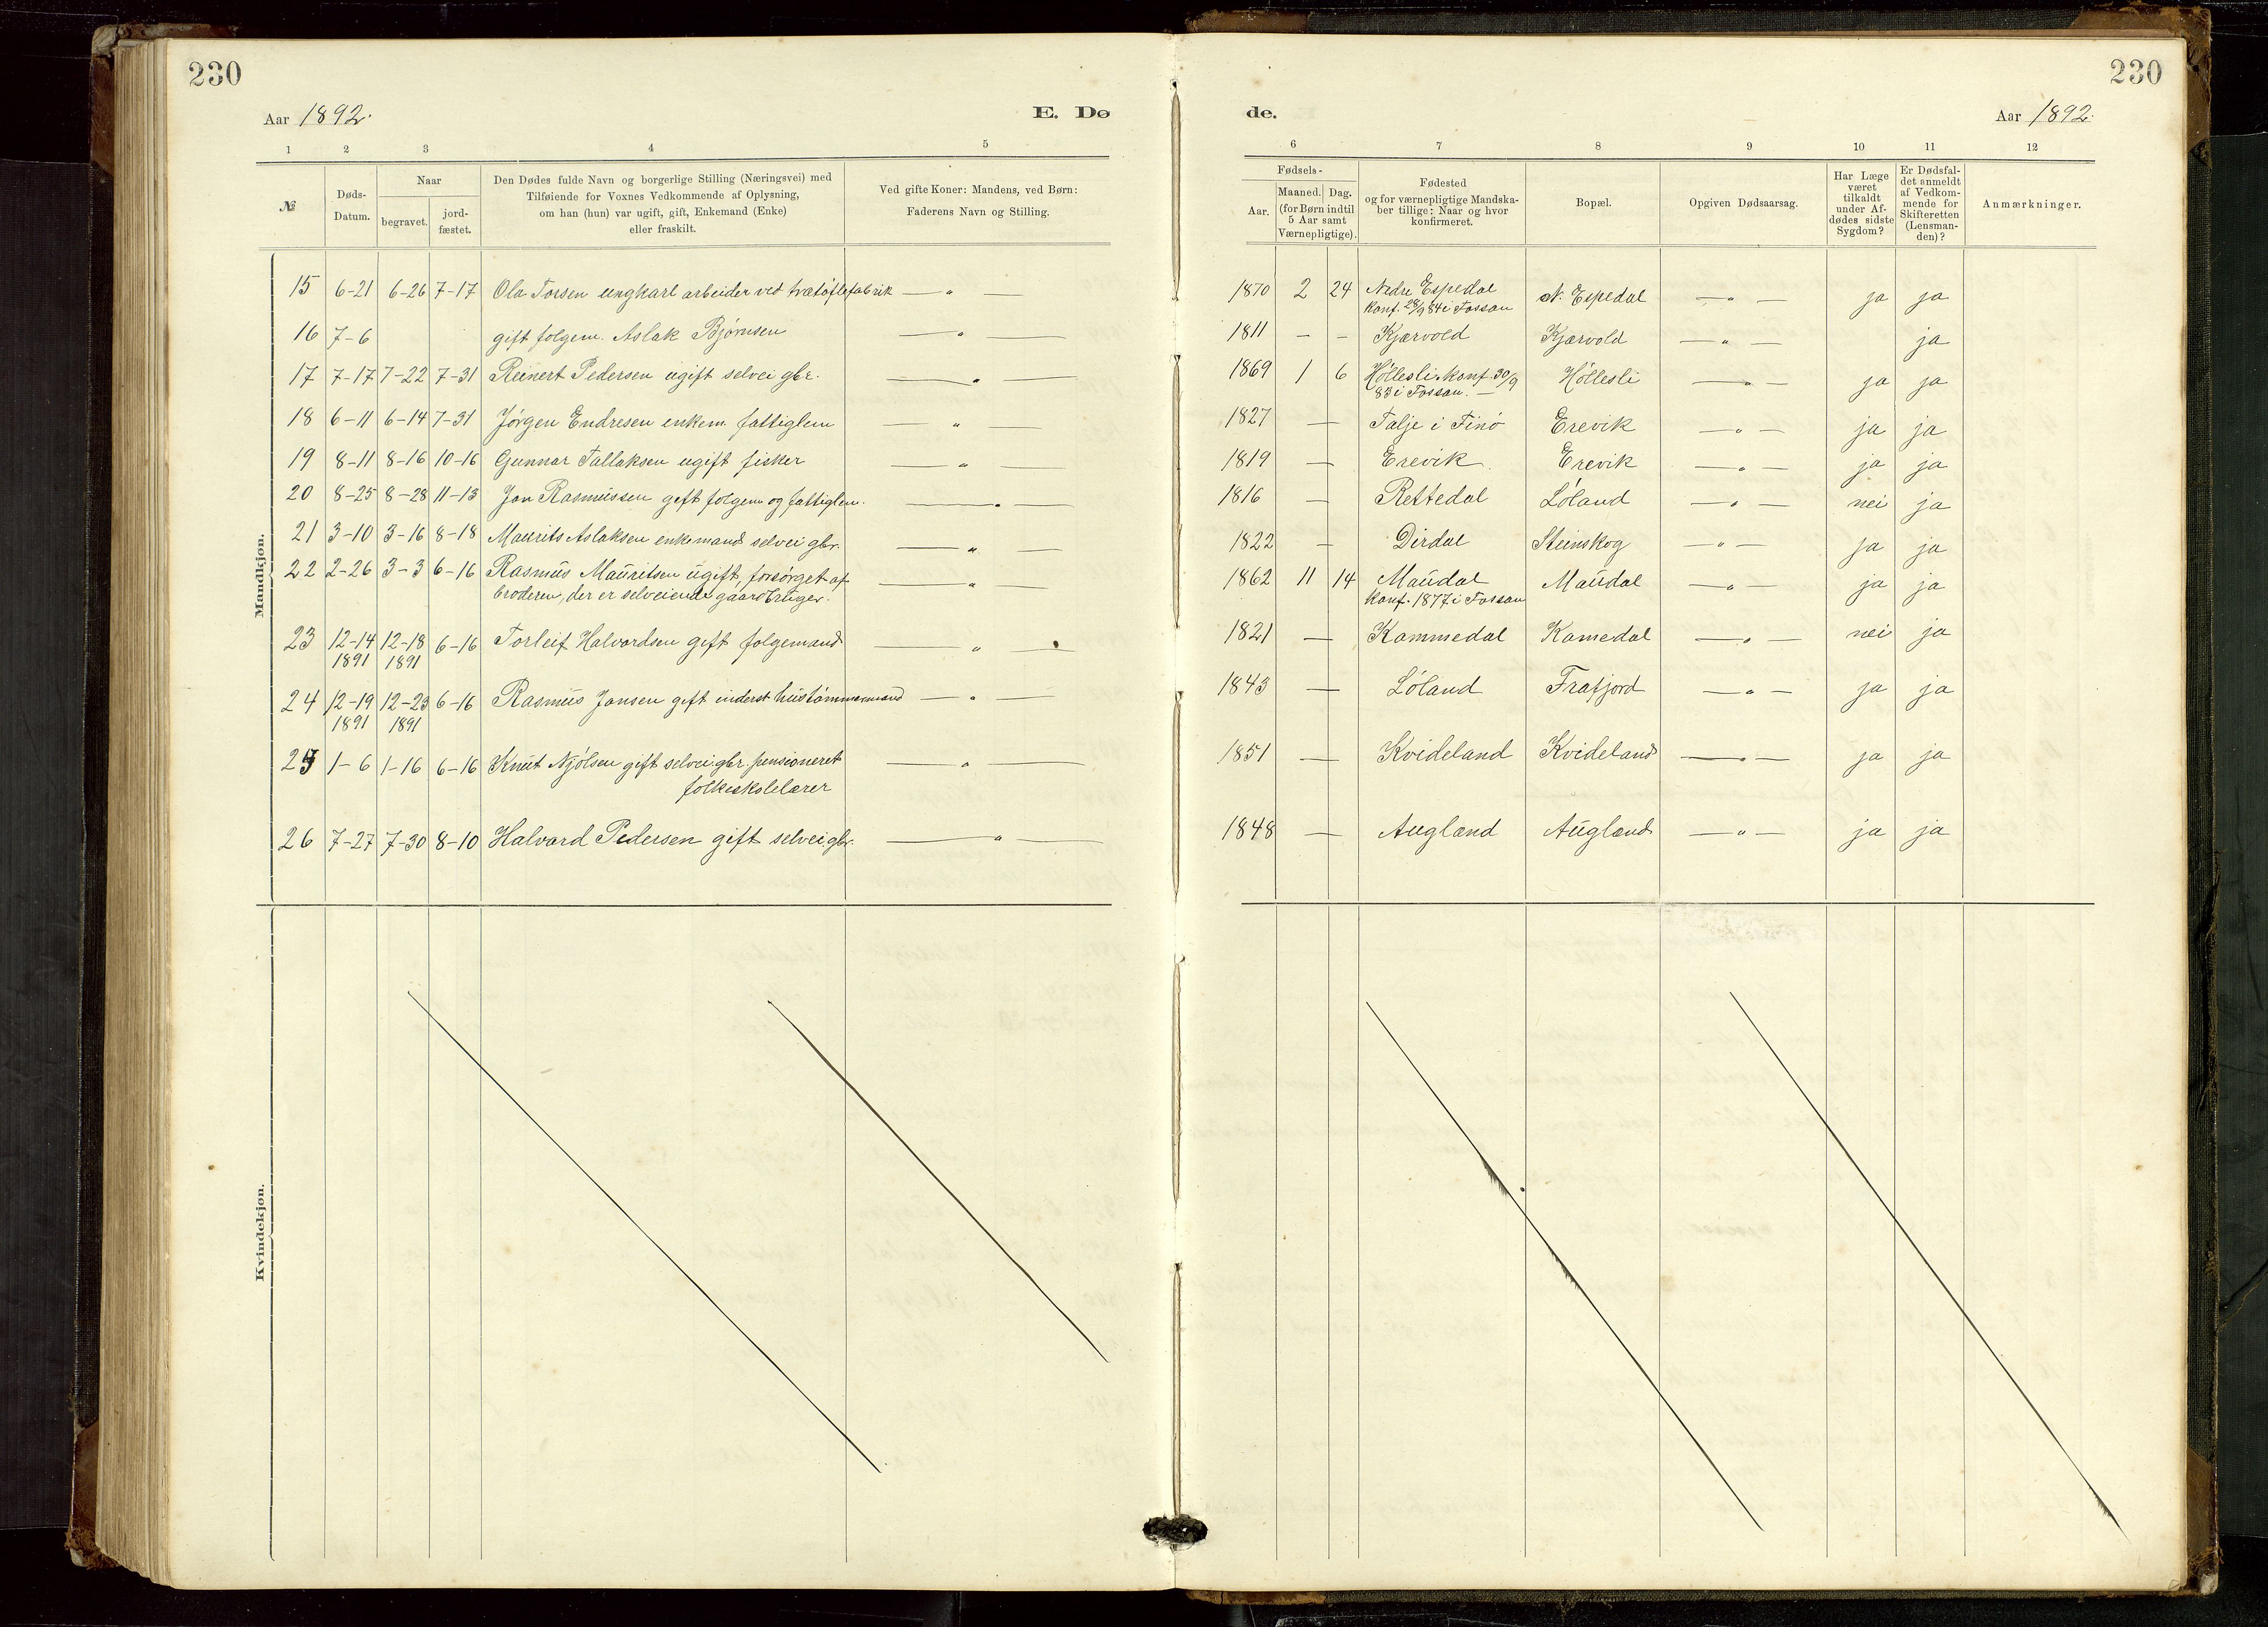 230
230
Aar 1892.
E. Dø
de.
Aar 1892.
1 2 3 4 5
6 7 8 9 10 11 12
№
Døds-
Datum.
Naar
begravet.
jord-
fæstet.
Den Dødes fulde Navn og borgerlige Stilling (Næringsvei) med
Tilføiende for Voxnes Vedkommende af Oplysning,
om han (hun) var ugift, gift, Enkemand (Enke)
eller fraskilt.
Ved gifte Koner: Mandens, ved Børn:
Faderens Navn og Stilling.
Fødsels-
Aar.
Maaned. Dag.
(for Børn indtil
5 Aar samt
Værnepligtige).
Fødested
og for værnepligtige Mandska-
ber tillige: Naar og hvor
konfirmeret.
Bopæl.
Opgiven Dødsaarsag.
Har Læge
været
tilkaldt
under Af-
dødes sidste
Sygdom?
Er Dødsfal-
det anmeldt
af Vedkom-
mende for
Skifteretten
(Lensman-
den)?
Anmærkninger.
Mandkjøn.
15 6-21 6-26 7-17 Ola Torsen ungkarl arbeider ved trætøflefabrik — " — 1870 2 24 Nedre Espedal N. Espedal — " — ja ja
konf. 28/9 84 i Fossan
16 7-6 gift folgem. Aslak Bjørnsen — " — 1811 - - Kjærvold Kjærvold — " — ja
17 7-17 7-22 7-31 Reinert Pedersen ugift selvei gbr. — " — 1869 1 6 Høllesli. konf. 30/9 Høllesli — " — ja ja
83 i Fossan. —
18 6-11 6-14 7-31 Jørgen Endresen enkem. fattiglem — " — 1827 — Talje i Finø Erevik — " — ja ja
19 8-11 8-16 10-16 Gunnar Tallaksen ugift fisker — " — 1819 — Erevik Erevik — " — ja ja
20 8-25 8-28 11-13 Jan Rasmussen gift folgem og fattiglem. — " — 1816 — Rettedal Løland — " — nei ja
21 3-10 3-16 8-18 Maurits Aslaksen enkemand selvei gbr. — " — 1822 — Dirdal Steinskog — " — ja ja
22 2-26 3-3 6-16 Rasmus Mauritsen ugift, forsørget af — " — 1862 11 14 Maudal Maudal — " — ja ja
broderen, der er selveiende gaardbruger. konf. 1877 i Fossan
23 12-14 12-18 6-16 Torleif Halvordsen gift folgemand — " — 1821 — Kommedal Komedal — " — nei ja
1891 1891
24 12-19 12-23 6-16 Rasmus Jansen gift inderst hustømmermand — " — 1843 — Løland Frafjord — " — ja ja
1891 1891
25 1-6 1-16 6-16 Knut Njølsen gift selvei gbr. pensioneret — " — 1851 — Kvideland Kvideland — " — ja ja
folkeskolelærer
26 7-27 7-30 8-10 Halvard Pedersen gift selvei gbr. — " — 1848 — Augland Augland — " — ja ja
Kvindekjøn.